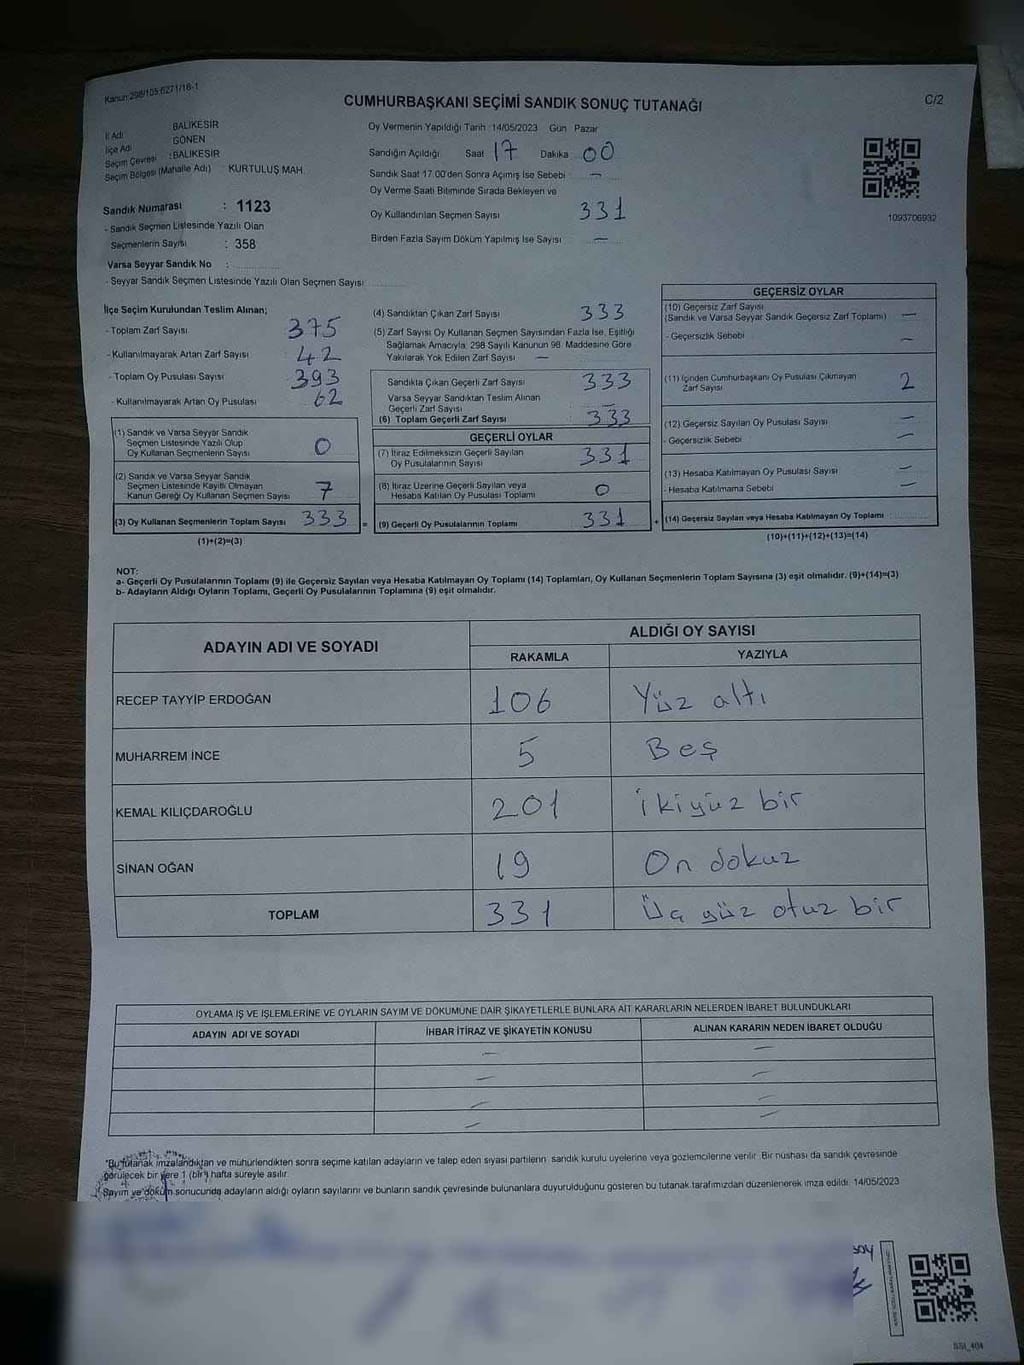 Kanun:298/105,6271/18-1
CUMHURBAŞKANI SEÇİMİ SANDIK SONUÇ TUTANAĞI
C/2
İl Adı : BALIKESİR
İlçe Adı : GÖNEN
Seçim Çevresi : BALIKESİR
Seçim Bölgesi (Mahalle Adı) KURTULUŞ MAH.
Sandık Numarası : 1123
- Sandık Seçmen Listesinde Yazılı Olan
Seçmenlerin Sayısı : 358
Varsa Seyyar Sandık No :
- Seyyar Sandık Seçmen Listesinde Yazılı Olan Seçmen Sayısı
Oy Vermenin Yapıldığı Tarih :14/05/2023 Gün Pazar
Sandığın Açıldığı Saat 17 Dakika 00
Sandık Saat 17.00'den Sonra Açılmış İse Sebebi : -
Oy Verme Saati Bitiminde Sırada Bekleyen ve
Oy Kullandırılan Seçmen Sayısı 331
Birden Fazla Sayım Döküm Yapılmış İse Sayısı -
1093706932
İlçe Seçim Kurulundan Teslim Alınan;
- Toplam Zarf Sayısı 375
- Kullanılmayarak Artan Zarf Sayısı 42
- Toplam Oy Pusulası Sayısı 393
- Kullanılmayarak Artan Oy Pusulası 62
(1) Sandık ve Varsa Seyyar Sandık
Seçmen Listesinde Yazılı Olup
Oy Kullanan Seçmenlerin Sayısı 0
(2) Sandık ve Varsa Seyyar Sandık
Seçmen Listesinde Kayıtlı Olmayan
Kanun Gereği Oy Kullanan Seçmen Sayısı 7
(3) Oy Kullanan Seçmenlerin Toplam Sayısı 333 =
(1)+(2)=(3)
(4) Sandıktan Çıkan Zarf Sayısı 333
(5) Zarf Sayısı Oy Kullanan Seçmen Sayısından Fazla İse, Eşitliği
Sağlamak Amacıyla, 298 Sayılı Kanunun 98. Maddesine Göre
Yakılarak Yok Edilen Zarf Sayısı -
Sandıkta Çıkan Geçerli Zarf Sayısı 333
Varsa Seyyar Sandıktan Teslim Alınan
Geçerli Zarf Sayısı
(6) Toplam Geçerli Zarf Sayısı 333
GEÇERLİ OYLAR
(7) İtiraz Edilmeksizin Geçerli Sayılan
Oy Pusulalarının Sayısı 331
(8) İtiraz Üzerine Geçerli Sayılan veya
Hesaba Katılan Oy Pusulası Toplamı 0
(9) Geçerli Oy Pusulalarının Toplamı 331 +
GEÇERSİZ OYLAR
(10) Geçersiz Zarf Sayısı
(Sandık ve Varsa Seyyar Sandık Geçersiz Zarf Toplamı) -
- Geçersizlik Sebebi -
(11) İçinden Cumhurbaşkanı Oy Pusulası Çıkmayan
Zarf Sayısı 2
(12) Geçersiz Sayılan Oy Pusulası Sayısı -
- Geçersizlik Sebebi -
(13) Hesaba Katılmayan Oy Pusulası Sayısı -
- Hesaba Katılmama Sebebi -
(14) Geçersiz Sayılan veya Hesaba Katılmayan Oy Toplamı
(10)+(11)+(12)+(13)=(14)
NOT:
a- Geçerli Oy Pusulalarının Toplamı (9) ile Geçersiz Sayılan veya Hesaba Katılmayan Oy Toplamı (14) Toplamları, Oy Kullanan Seçmenlerin Toplam Sayısına (3) eşit olmalıdır. (9)+(14)=(3)
b- Adayların Aldığı Oyların Toplamı, Geçerli Oy Pusulalarının Toplamına (9) eşit olmalıdır.
ADAYIN ADI VE SOYADI
ALDIĞI OY SAYISI
RAKAMLA YAZIYLA
RECEP TAYYİP ERDOĞAN 106 Yüz altı
MUHARREM İNCE 5 Beş
KEMAL KILIÇDAROĞLU 201 ikiyüz bir
SİNAN OĞAN 19 On dokuz
TOPLAM 331 Üç yüz otuz bir
OYLAMA İŞ VE İŞLEMLERİNE VE OYLARIN SAYIM VE DÖKÜMÜNE DAİR ŞİKAYETLERLE BUNLARA AİT KARARLARIN NELERDEN İBARET BULUNDUKLARI
ADAYIN ADI VE SOYADI İHBAR İTİRAZ VE ŞİKAYETİN KONUSU ALINAN KARARIN NEDEN İBARET OLDUĞU
- -
- -
- -
- -
*Bu tutanak imzalandıktan ve mühürlendikten sonra seçime katılan adayların ve talep eden siyasi partilerin, sandık kurulu üyelerine veya gözlemcilerine verilir. Bir nüshası da sandık çevresinde
görülecek bir yere 1 (bir) hafta süreyle asılır.
Sayım ve döküm sonucunda adayların aldığı oyların sayılarını ve bunların sandık çevresinde bulunanlara duyurulduğunu gösteren bu tutanak tarafımızdan düzenlenerek imza edildi. 14/05/2023